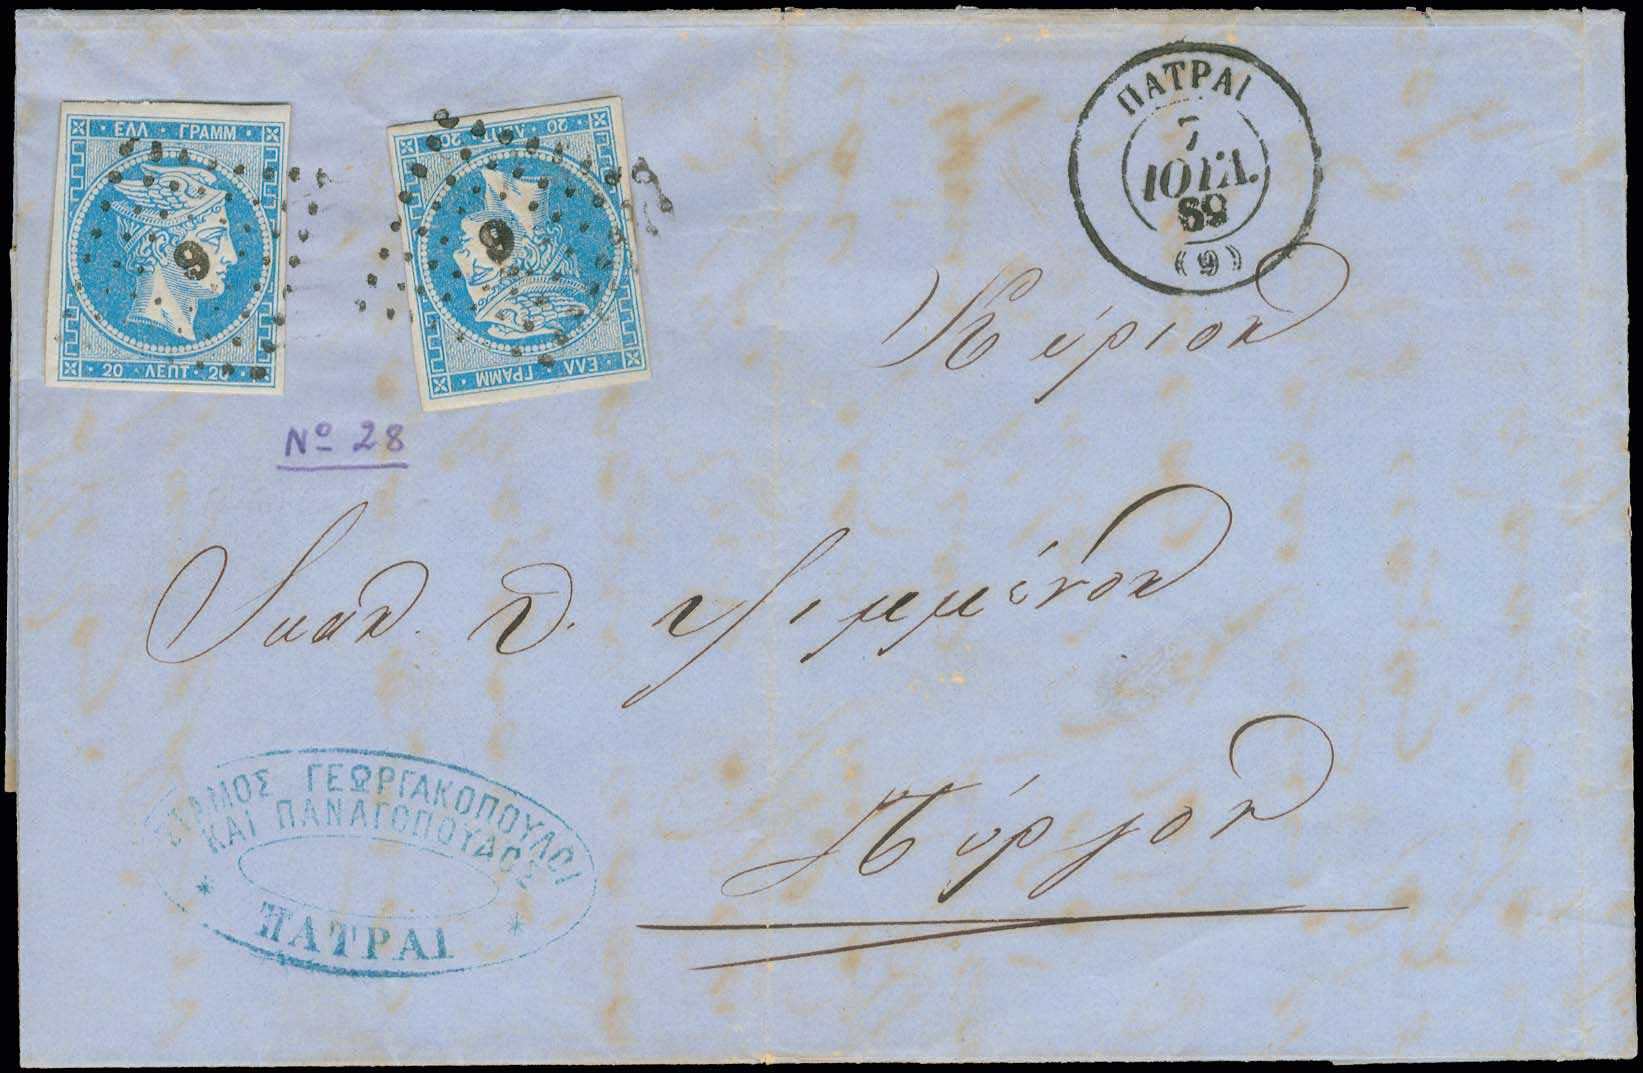 ΕΛΛ ΓΡΑΜΜ
9
20 ΛΕΠΤ 20
20 ΛΕΠΤ 20
9
ΕΛΛ ΓΡΑΜΜ
ΠΑΤΡΑΙ
7
ΙΟΥΛ.
69
(9)
Nº 28
Κύριον
Πύργον
ΣΤΑΜΟΣ ΓΕΩΡΓΑΚΟΠΟΥΛΟΙ
ΚΑΙ ΠΑΝΑΓΟΠΟΥΛΟΣ
* ΠΑΤΡΑΙ *